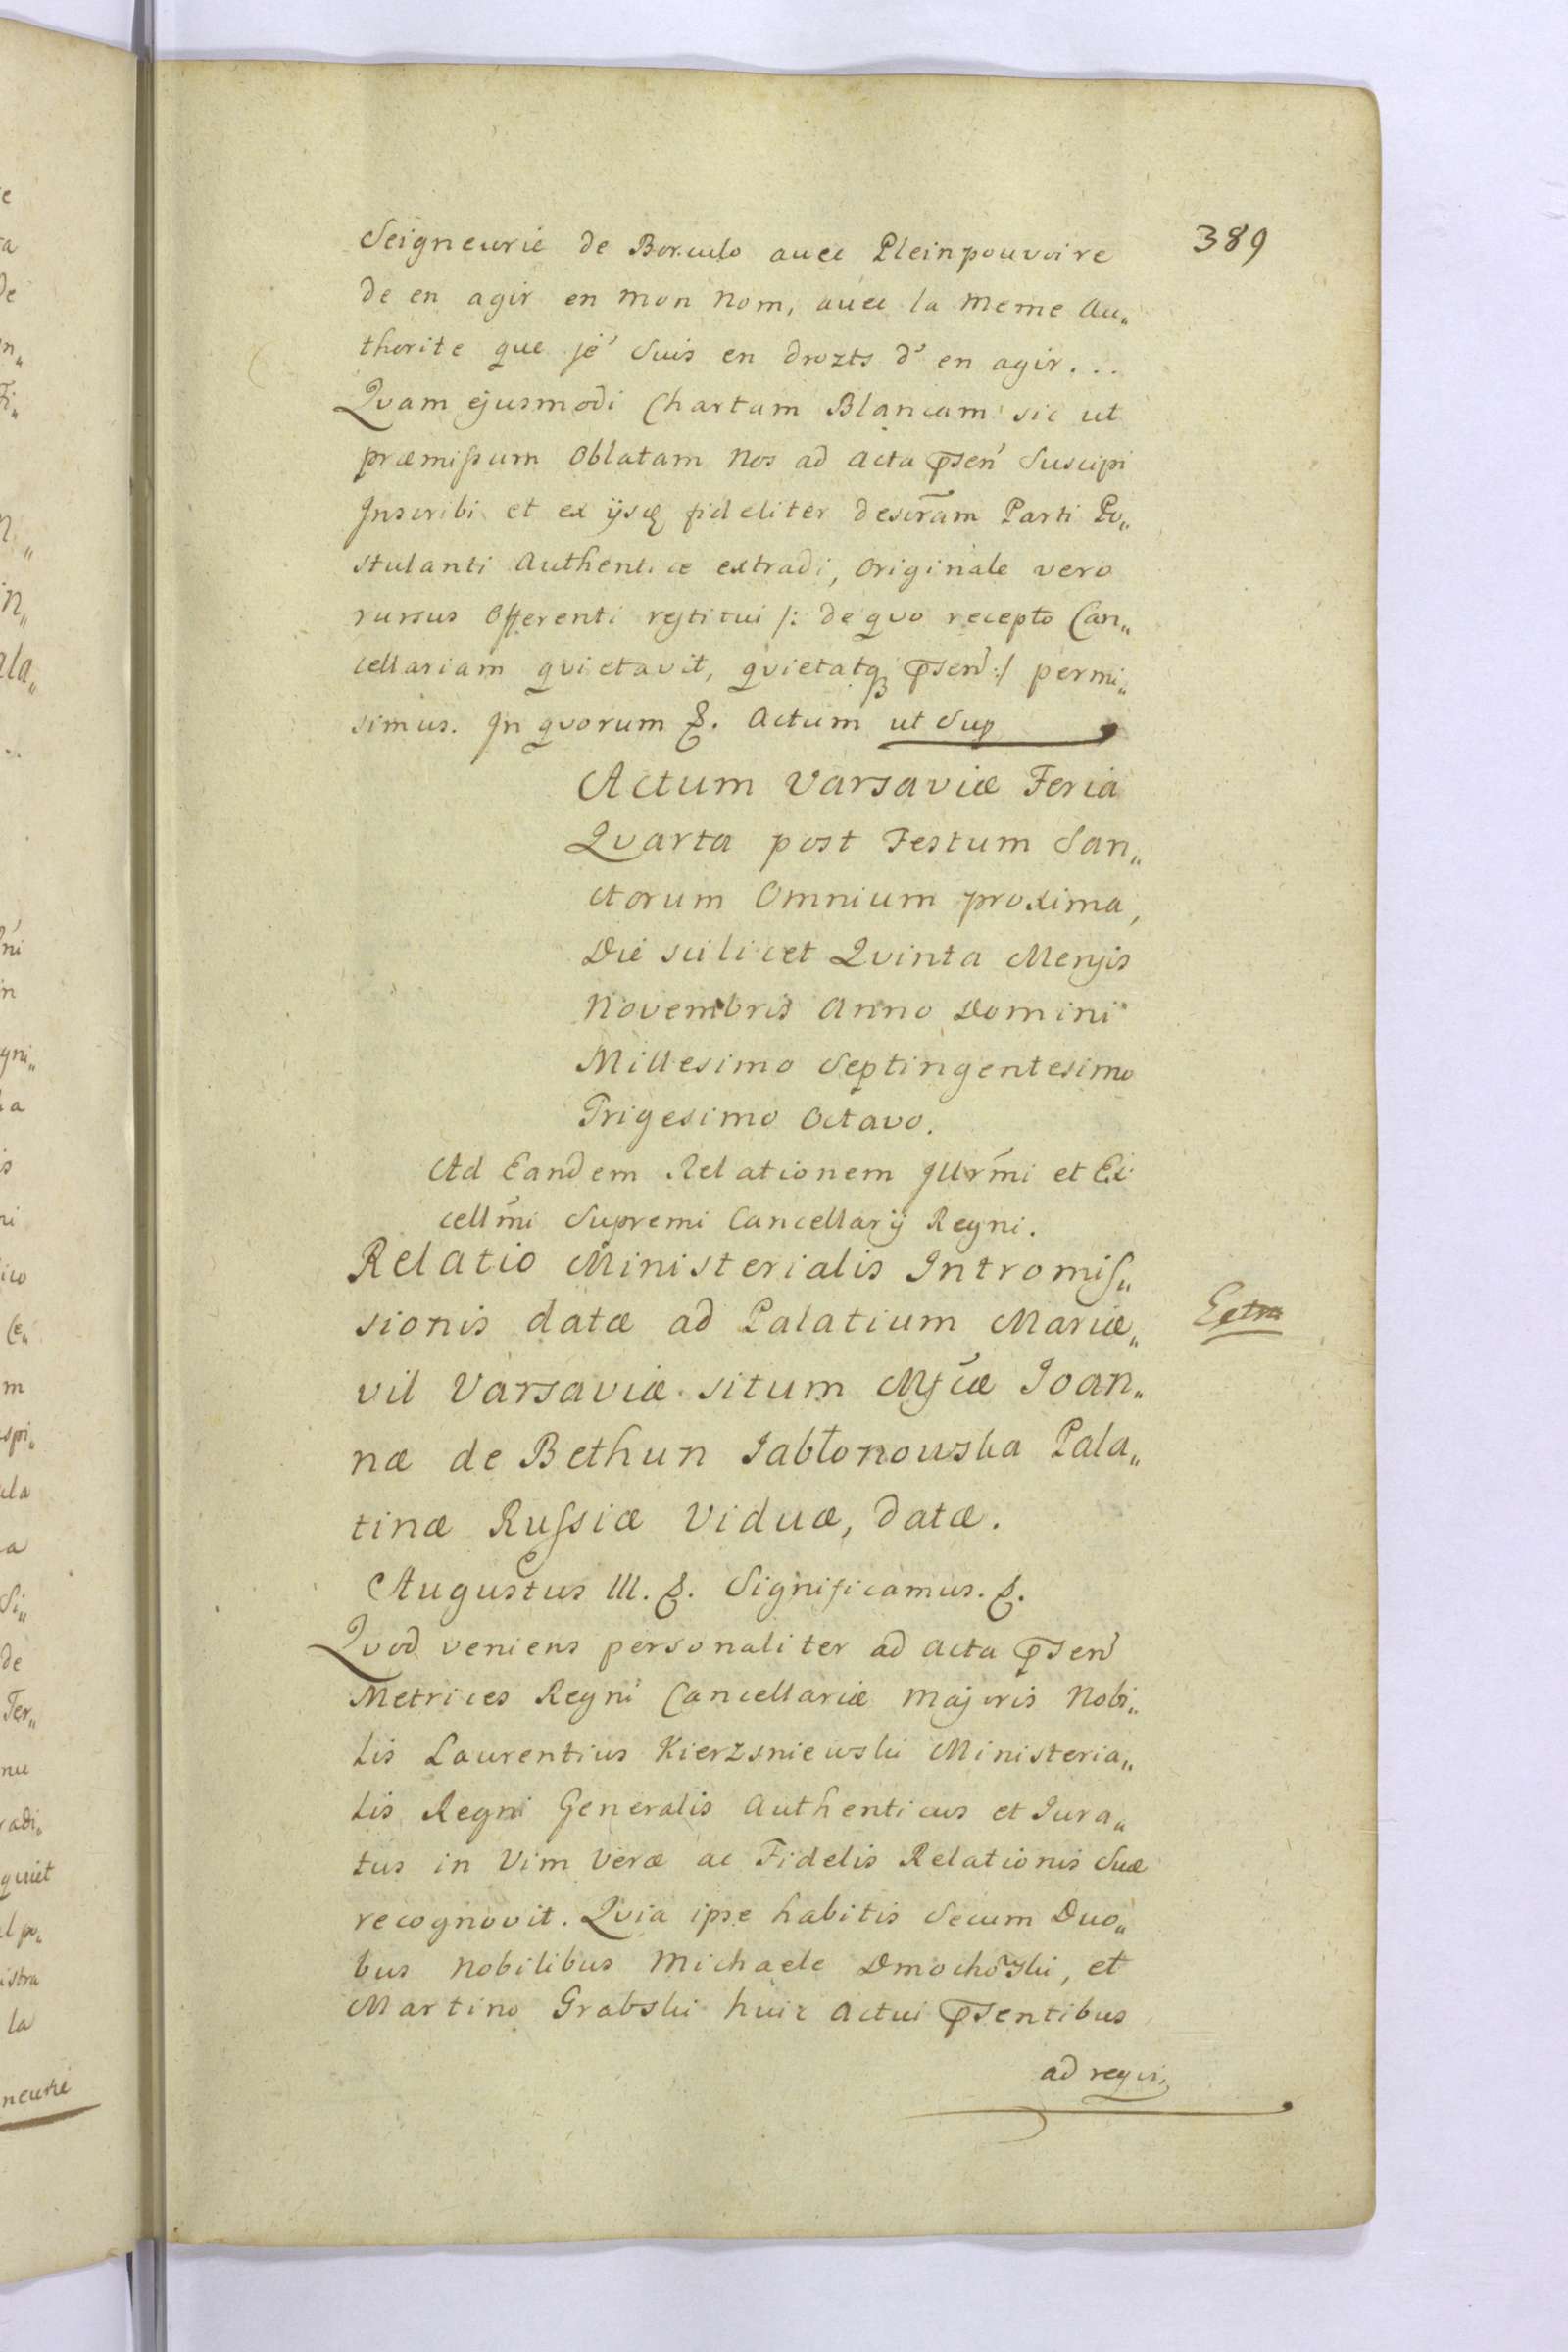 389
Seigneurie de Borculo avec Pleinpouvoire
de en agir en mon nom, avec la meme Au„
thorite que je' suis en drozts d' en agir...
Qvam ejusmodi Chartam Blancam sic ut
præmissum Oblatam Nos ad Acta p̄sen̄ Suscipi
Inscribi et ex ijsq fideliter descrām Parti Po„
stulanti Authentice extradi, Originale vero
rursus Offerenti restitui /: de qvo recepto Can„
cellariam qvietavit, qvietatq p̄sen̄ :/ permi„
simus. In qvorum &. Actum ut Sup
Actum Varsaviæ Feria
Qvarta post Festum San„
ctorum Omnium proxima,
Die scilicet Qvinta Mensis
Novembris Anno Domini
Millesimo Septingentesimo
Trigesimo Octavo.
Ad Eandem Relationem Illrm̄i et Ex
cellm̄i Supremi Cancellarij Regni.
Relatio Ministerialis Intromis„
sionis datæ ad Palatium Mariæ„
vil Varsaviæ situm Mf̄cæ Joan„
næ de Bethun Jabłonowska Pala„
tinæ Russiæ Viduæ, datæ.
Extra
Augustus III. &. Significamus. &.
Qvod veniens personaliter ad Acta p̄sen̄
Metrices Regni Cancellariæ Majoris Nobi„
lis Laurentius Kierzsniewski Ministeria„
lis Regni Generalis Authenticus et Jura„
tus in Vim Veræ ac Fidelis Relationis Suæ
recognovit. Qvia ipse habitis Secum Duo„
bus Nobilibus Michaele Dmochōski, et
Martino Grabski huic Actui p̄sentibus
ad reqvi„